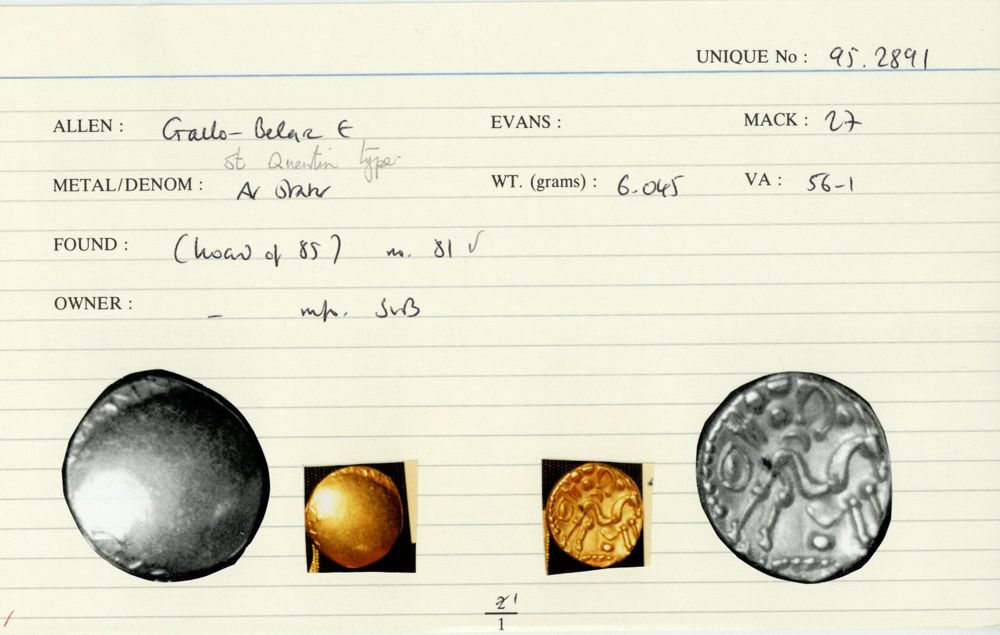 UNIQUE No : 95.2891
ALLEN : Gallo-Belgic E EVANS : MACK : 27
St Quentin type
METAL/DENOM : AV Stater WT. (grams) : 6.045 VA : 56-1
FOUND : (hoard of 85) no. 81 ✓
OWNER : -
1
1